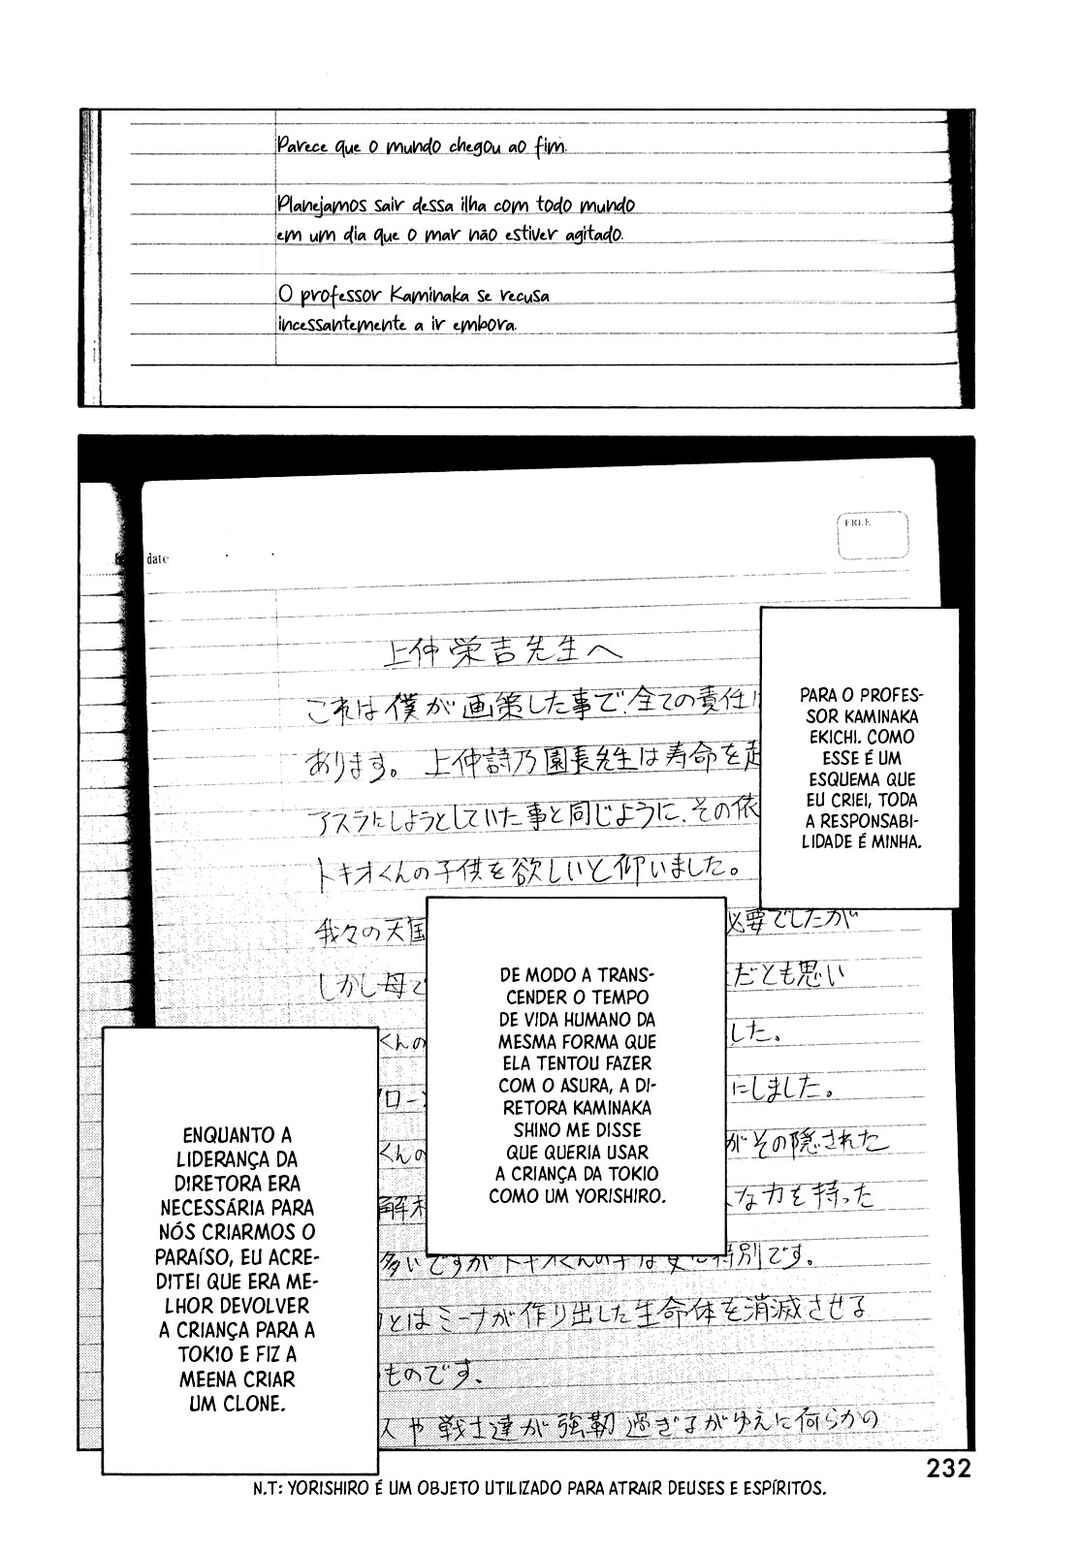 Parece que o mundo chegou ao fim.
Planejamos sair dessa ilha com todo mundo
em um dia que o mar não estiver agitado.
O professor Kaminaka se recusa
incessantemente a ir embora.
date
FREE
上仲栄吉先生へ
これは僕が画策した事で、全ての責任は
あります。上仲詩乃園長先生は寿命を超
アスラにしようとしていた事と同じように、その依
トキオくんの子供を欲しいと仰いました。
我々の天国
必要でしたが
しかし母で
だとも思い
くんの
した。
ロー
にしました。
くんの
がその隠された
解
な力を持った
多いですがトキオくんの子は更に特別です。
とはミーナが作り出した生命体を消滅させる
ものです。
人や戦士達が強靭過ぎるがゆえに何らかの
PARA O PROFES-
SOR KAMINAKA
EKICHI. COMO
ESSE É UM
ESQUEMA QUE
EU CRIEI, TODA
A RESPONSABI-
LIDADE É MINHA.
DE MODO A TRANS-
CENDER O TEMPO
DE VIDA HUMANO DA
MESMA FORMA QUE
ELA TENTOU FAZER
COM O ASURA, A DI-
RETORA KAMINAKA
SHINO ME DISSE
QUE QUERIA USAR
A CRIANÇA DA TOKIO
COMO UM YORISHIRO.
ENQUANTO A
LIDERANÇA DA
DIRETORA ERA
NECESSÁRIA PARA
NÓS CRIARMOS O
PARAÍSO, EU ACRE-
DITEI QUE ERA ME-
LHOR DEVOLVER
A CRIANÇA PARA A
TOKIO E FIZ A
MEENA CRIAR
UM CLONE.
232
N.T: YORISHIRO É UM OBJETO UTILIZADO PARA ATRAIR DEUSES E ESPÍRITOS.